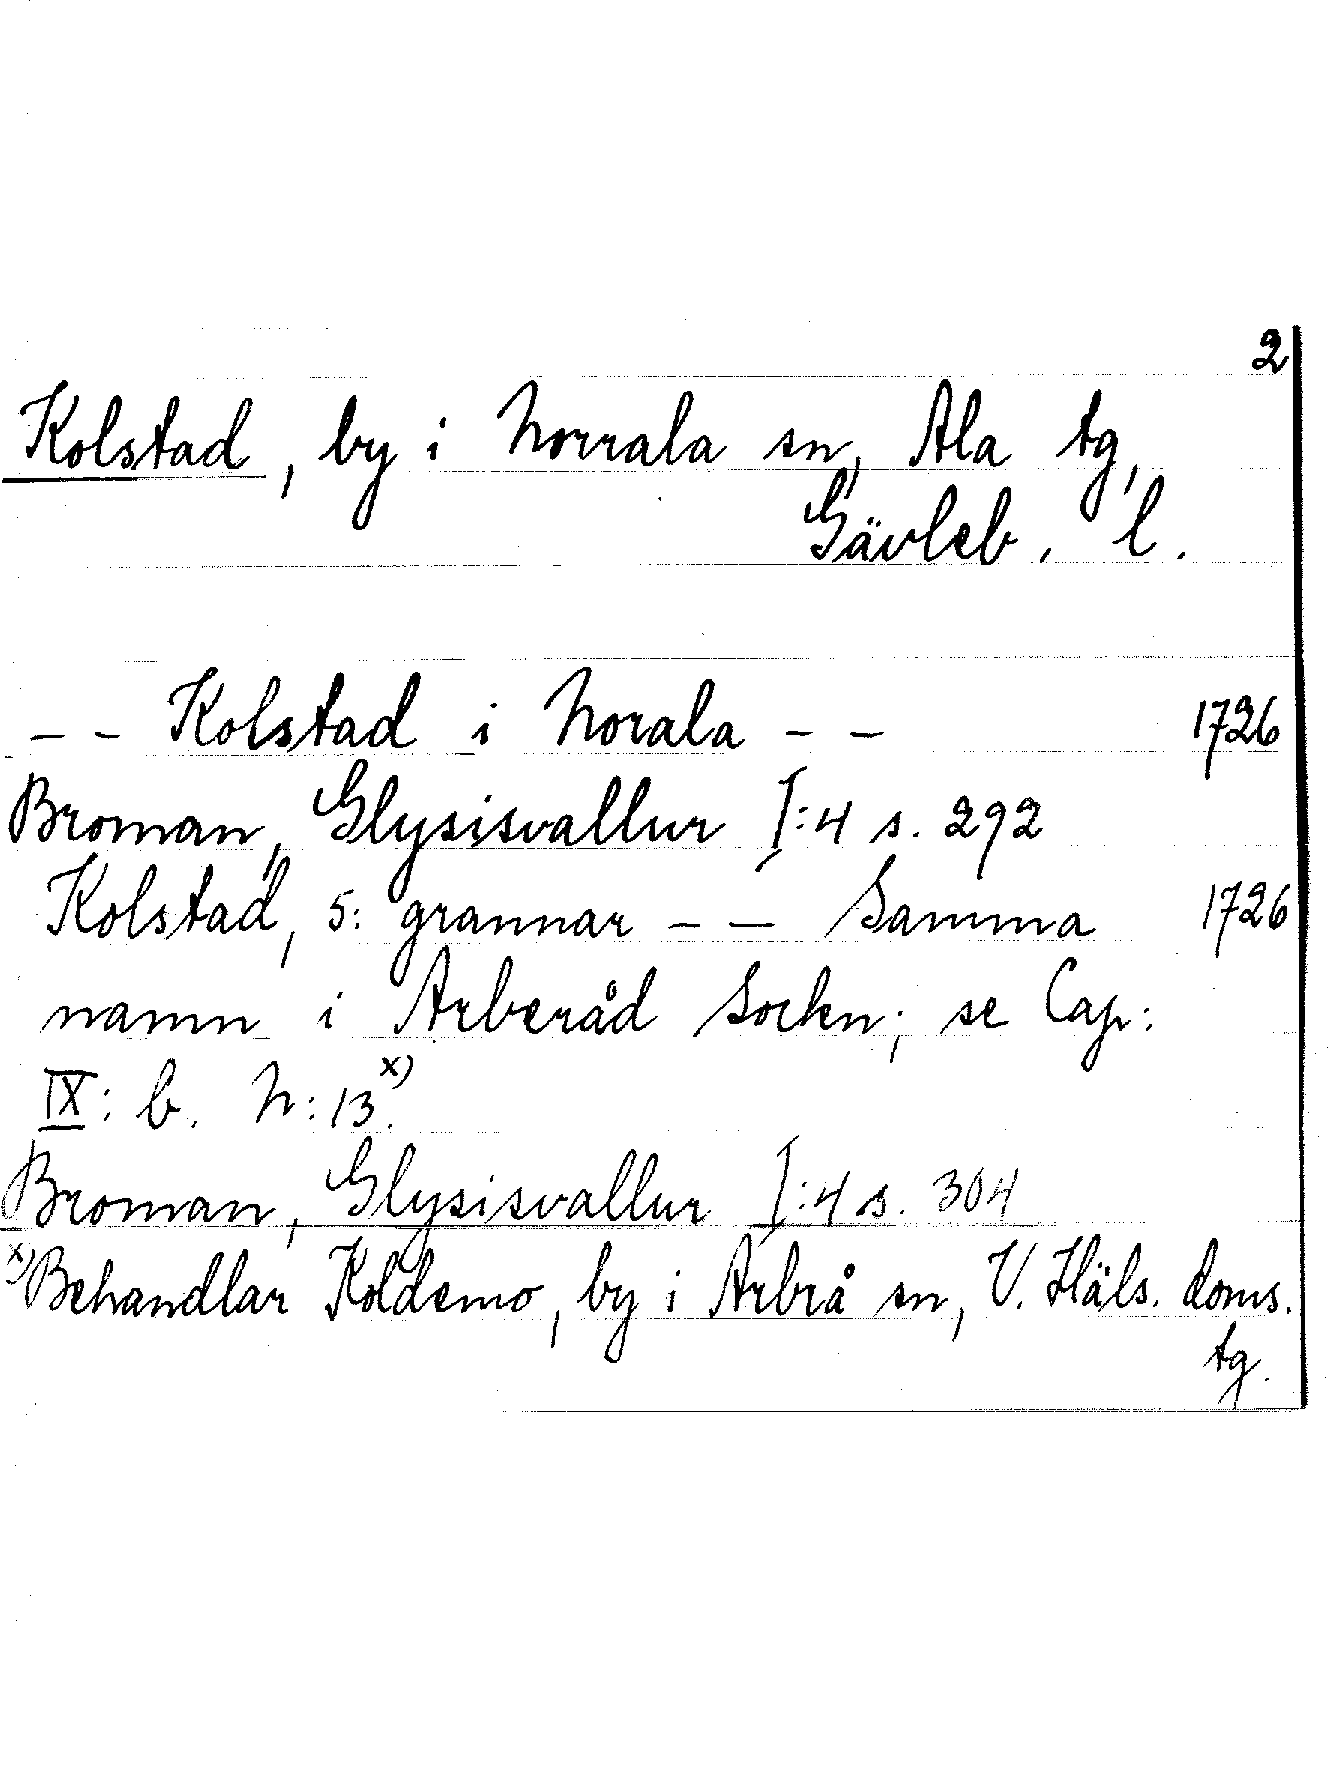 2
Kolstad, by i Norrala sn, Ala tg,
Gävleb. l.
- - Kolstad i Norala - - 1726
Broman, Glysisvallur I:4 s. 292
Kolstad, 5: grannar - - Samma 1726
namn i Arberåd Sockn; se Cap:
IX: b. N:13.x)
Broman, Glysisvallur I:4 s. 304
x) Behandlar Koldemo, by i Arbrå sn, V. Häls. doms.
tg.